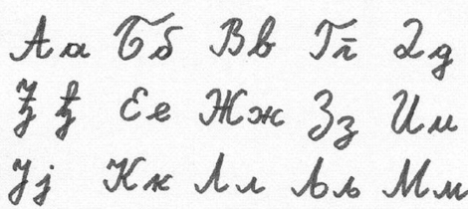 А а Б б В в Г г Д д
Ђ ђ Е е Ж ж З з И и
Ј ј К к Л л Љ љ М м